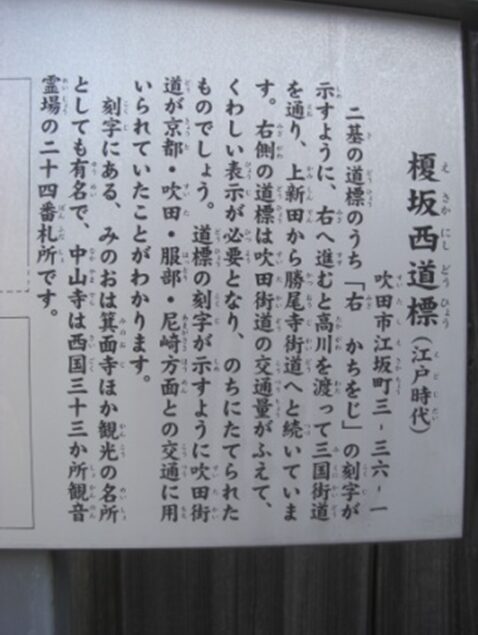 榎坂西道標(江戸時代)
吹田市江坂町三-三六-一
二基の道標のうち「右　かちをじ」の刻字が
示すように、右へ進むと高川を渡って三国街道
を通り、上新田から勝尾寺街道へと続いていま
す。右側の道標は吹田街道の交通量がふえて、
くわしい表示が必要となり、のちにたてられた
ものでしょう。道標の刻字が示すように吹田街
道が京都・吹田・服部・尼崎方面との交通に用
いられていたことがわかります。
刻字にある、みのおは箕面寺ほか観光の名所
としても有名で、中山寺は西国三十三か所観音
霊場の二十四番札所です。